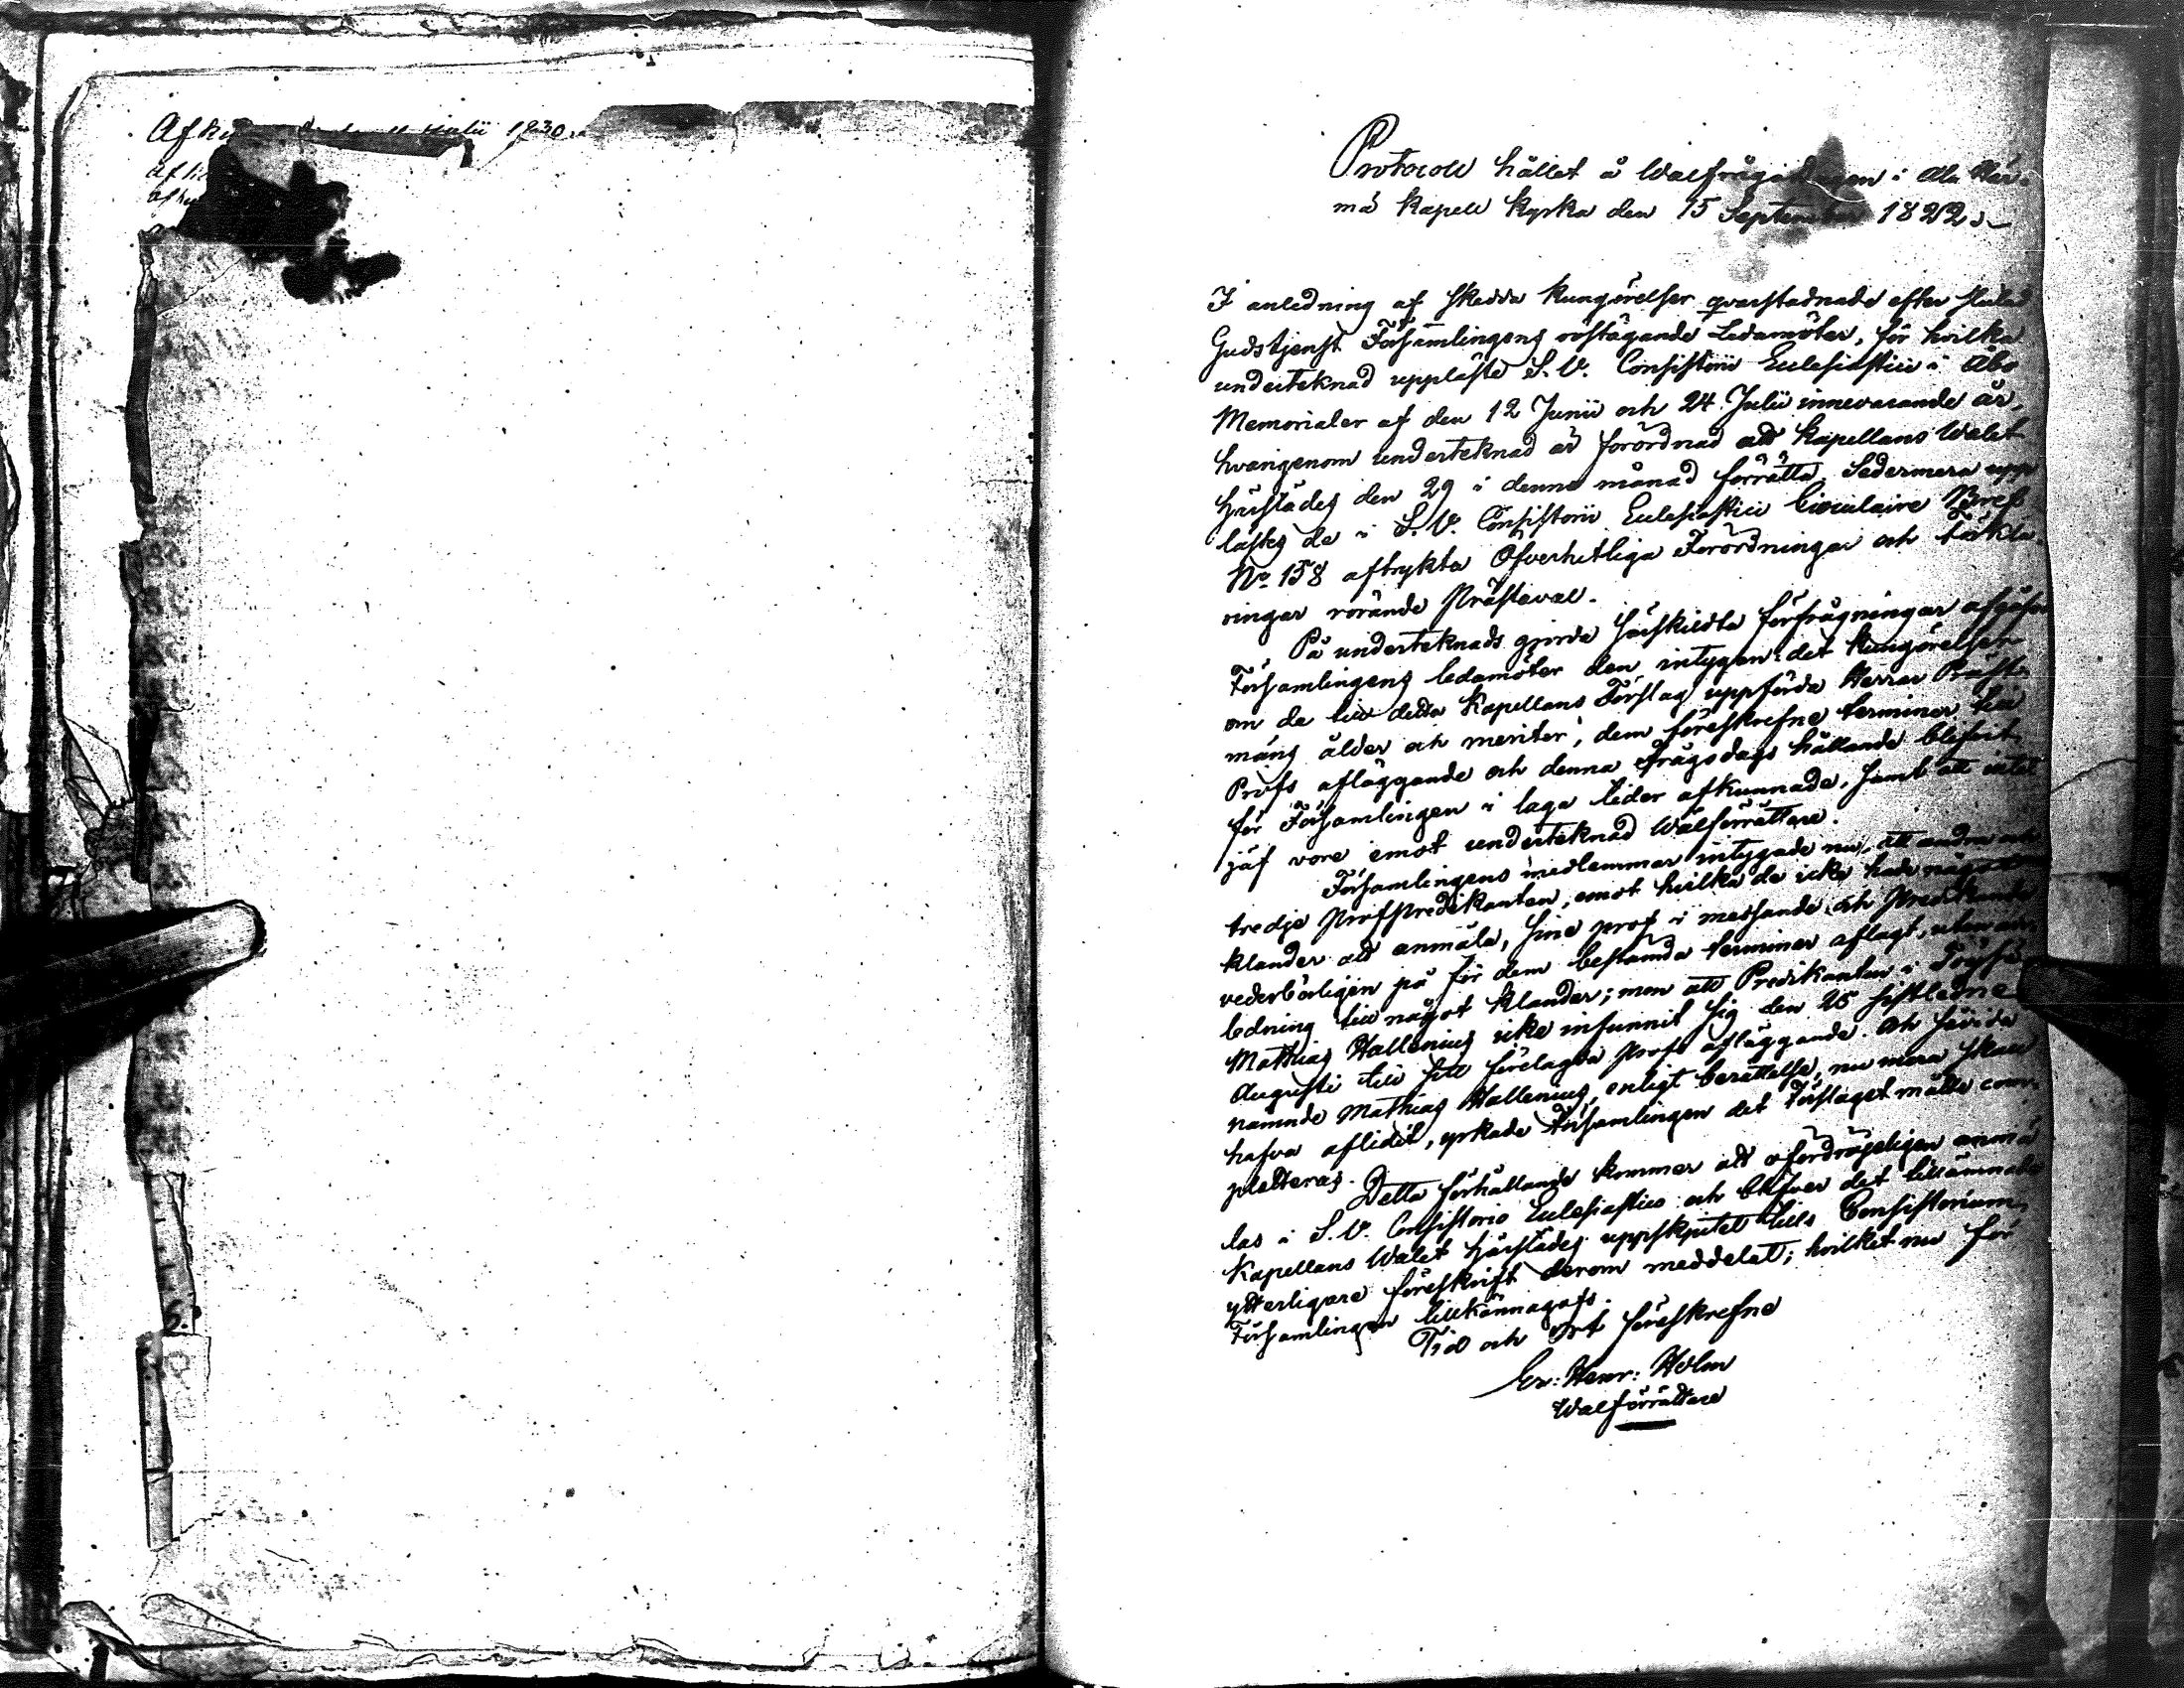 Julii 1830
Protocoll hållet å Walfrågodagen i Ala Här-
mä Kapell Kyrka den 15 September 1822.
I anledning af skedda kungörelser qvarstadnade efter slutad
Gudstjenst Församlingens röstägande Ledamöter, för hvilka
underteknad uppläste S. V. Consistorii Ecclesiastici i Åbo
Memorialer af den 12 Junii och 24 Julii innevarande år,
hvarigenom underteknad är förordnad att Kapellans Walet
härstädes den 29 i denne månad förrätta. Sedermera upp
lästes de i S. V. Consistorii Ecclesiastici Circulaire Bref
No 158 aftrykta Öfverhetliga Förordningar och Förkla
ringar rörande Prästeval.
På underteknads gjorda särskildta förfrågningar afgåfvo
Församlingens ledamöter den intygen: det kungörelsen
om de till detta Kapellans Förslag uppförda Herrar Präste
mäns ålder och meriter, dem föreskrefne terminer till
Profs afläggande och denna frågodags hållande blifvit
för Församlingen i laga tider afkunnade, samt att intet
jäf vore emot underteknad Walförrättare.
Församlingens medlemmar intygade nu, att andra och
tredje Profpredikanten, emot hvilka de icke hade något
klander att anmäla, sine prof i messande och Predikande
vederbörligen på för dem bestämda terminer aflagt, utan an-
ledning till något klander; men att Predikanten i
Mathias Hallenius icke infunnit sig den 25 sistledne
Augusti till sitt förelagda Profs afläggande. Och såvida
nämnde Mathias Hallenius, enligt berättelse, nu mera skall
hafva aflidit, yrkade Församlingen det Förslaget måtte com-
pletteras.
Detta förhållande kommer att ofördröjeligen anmä
las i S. V. Consistorio Ecclesiastico och blifver det tillämnade
Kapellans Walet härstädes uppskjutet tills Consistorium
ytterligare föreskrift derom meddelat; hvilket nu för
Församlingen tillkännagafs.
Tid och Ort föreskrefne
Er: Henr: Holm
Walförrättare